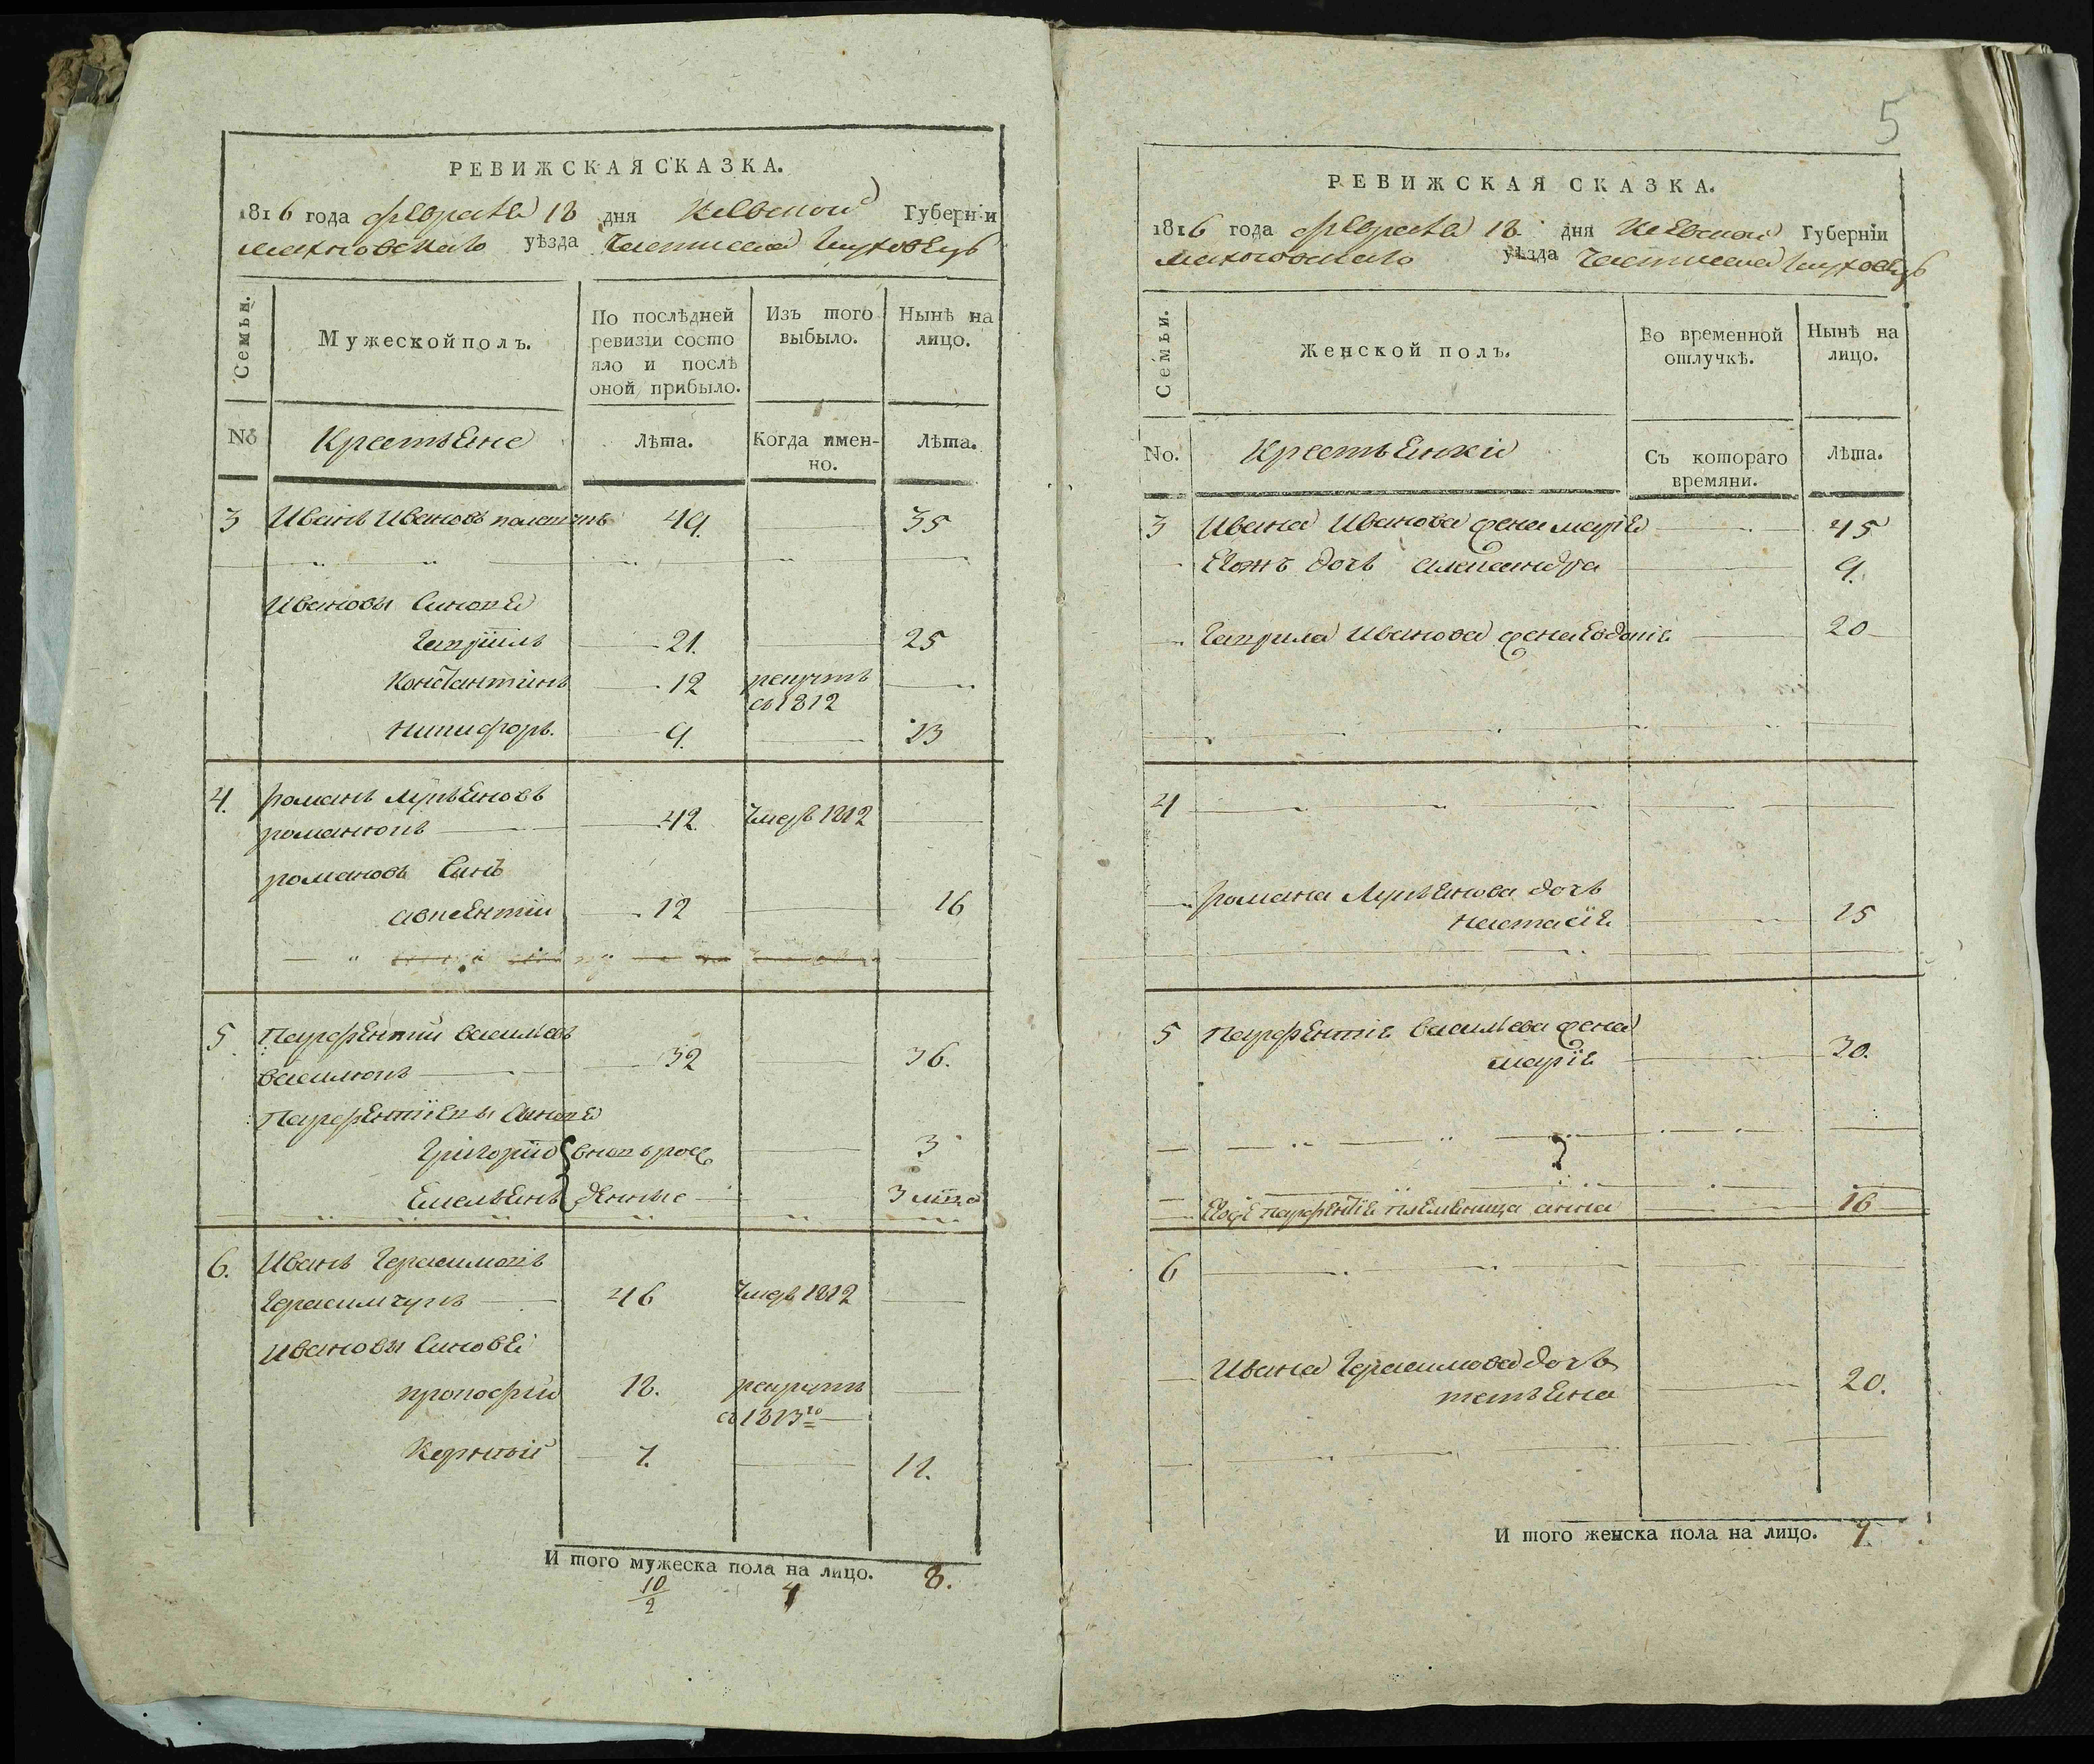 РЕВИЖСКАЯ СКАЗКА.
1816 года февраля 18 дня Киевской Губерніи
махновскаго уѣзда части села
Семьи.
Мужеской полъ.
По послѣдней ревизіи состояло и послѣ оной прибыло.
Изъ того выбыло.
Нынѣ на лицо.
No
Крестьяне
Лѣта.
Когда имен-
но.
Лѣта.
3 Иванъ Ивановъ 49. 35
Ивановы Синовя
Гаврііль 21. 25
Константинъ 12 рекрутъ
въ 1812
Никифоръ. 9. 23
4. романъ Лукьяновъ
романюкъ 42. Умеръ 1812
романовъ Синъ
авксентій 12 16
5. Парфентій васильевъ
василюкъ 32 36.
Парфентіевы Синовя
Григорій вновь рож 3
Емельянъ денные 3 лѣта
6. Иванъ Герасимовъ
Герасимчукъ 46 Умеръ 1812
ивановы Синовя
прокофій 18. рекрутъ
въ 1813го
7. 11.
И того мужеска пола на лицо. 8.
10
2
4
5
РЕВИЖСКАЯ СКАЗКА.
1816 года февраля 18. дня Киевской Губерніи
махновскаго уѣзда части села
Семьи.
Женской полъ.
Во временной отлучкѣ.
Нынѣ на лицо.
No.
Крестьянки
Съ котораго
времяни.
Лѣта.
3 Ивана Иванова жена марія 45
Егожъ дочь александра 9.
Гаврила Иванова жена Евдокія 20
4
романа Лукьянова дочь
настасія 15
5 Парфентія васильева жена
марія 30.
Егожъ парфентія племяница анна 16
6
Ивана Герасимова дочь
татьяна 20.
И того женска пола на лицо. 7.